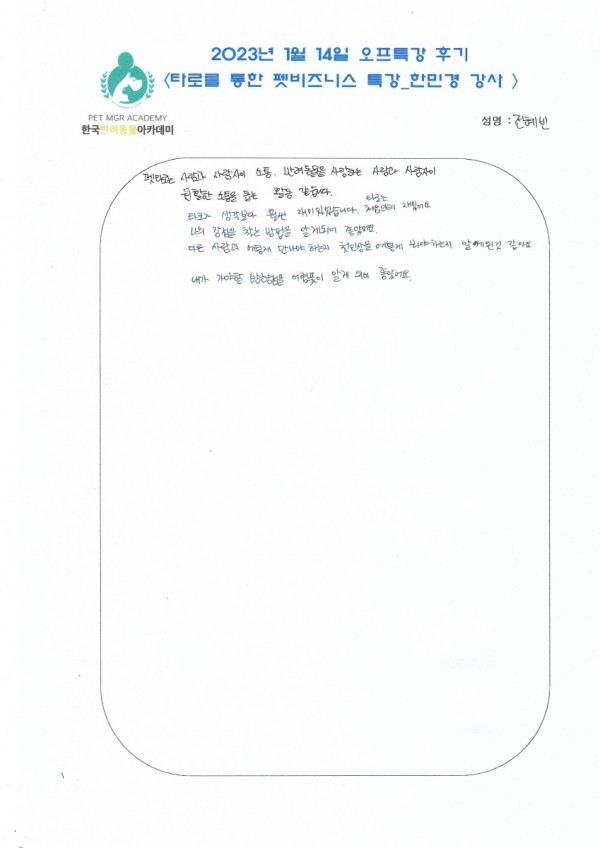 2023년 1월 14일 오프특강 후기
<타로를 통한 펫비즈니스 특강_한민경 강사 >
PET MGR ACADEMY
한국반려동물아카데미
성명 : 전혜빈
펫타로는 사람과 사람사이 소통, 반려동물을 사랑하는 사람과 사람사이
원활한 소통을 돕는 활동 같습니다.
타로가 생각보다 훨씬 재미있었습니다. 타로는 처음인데 재밌어요
나의 강점을 찾는 방법을 알게되어 좋았어요.
다른 사람과 어떻게 만나야 하는지 첫인상을 어떻게 봐야하는지 알게된것 같아요
내가 가야할 방향성을 어렴풋이 알게 되어 좋았어요.